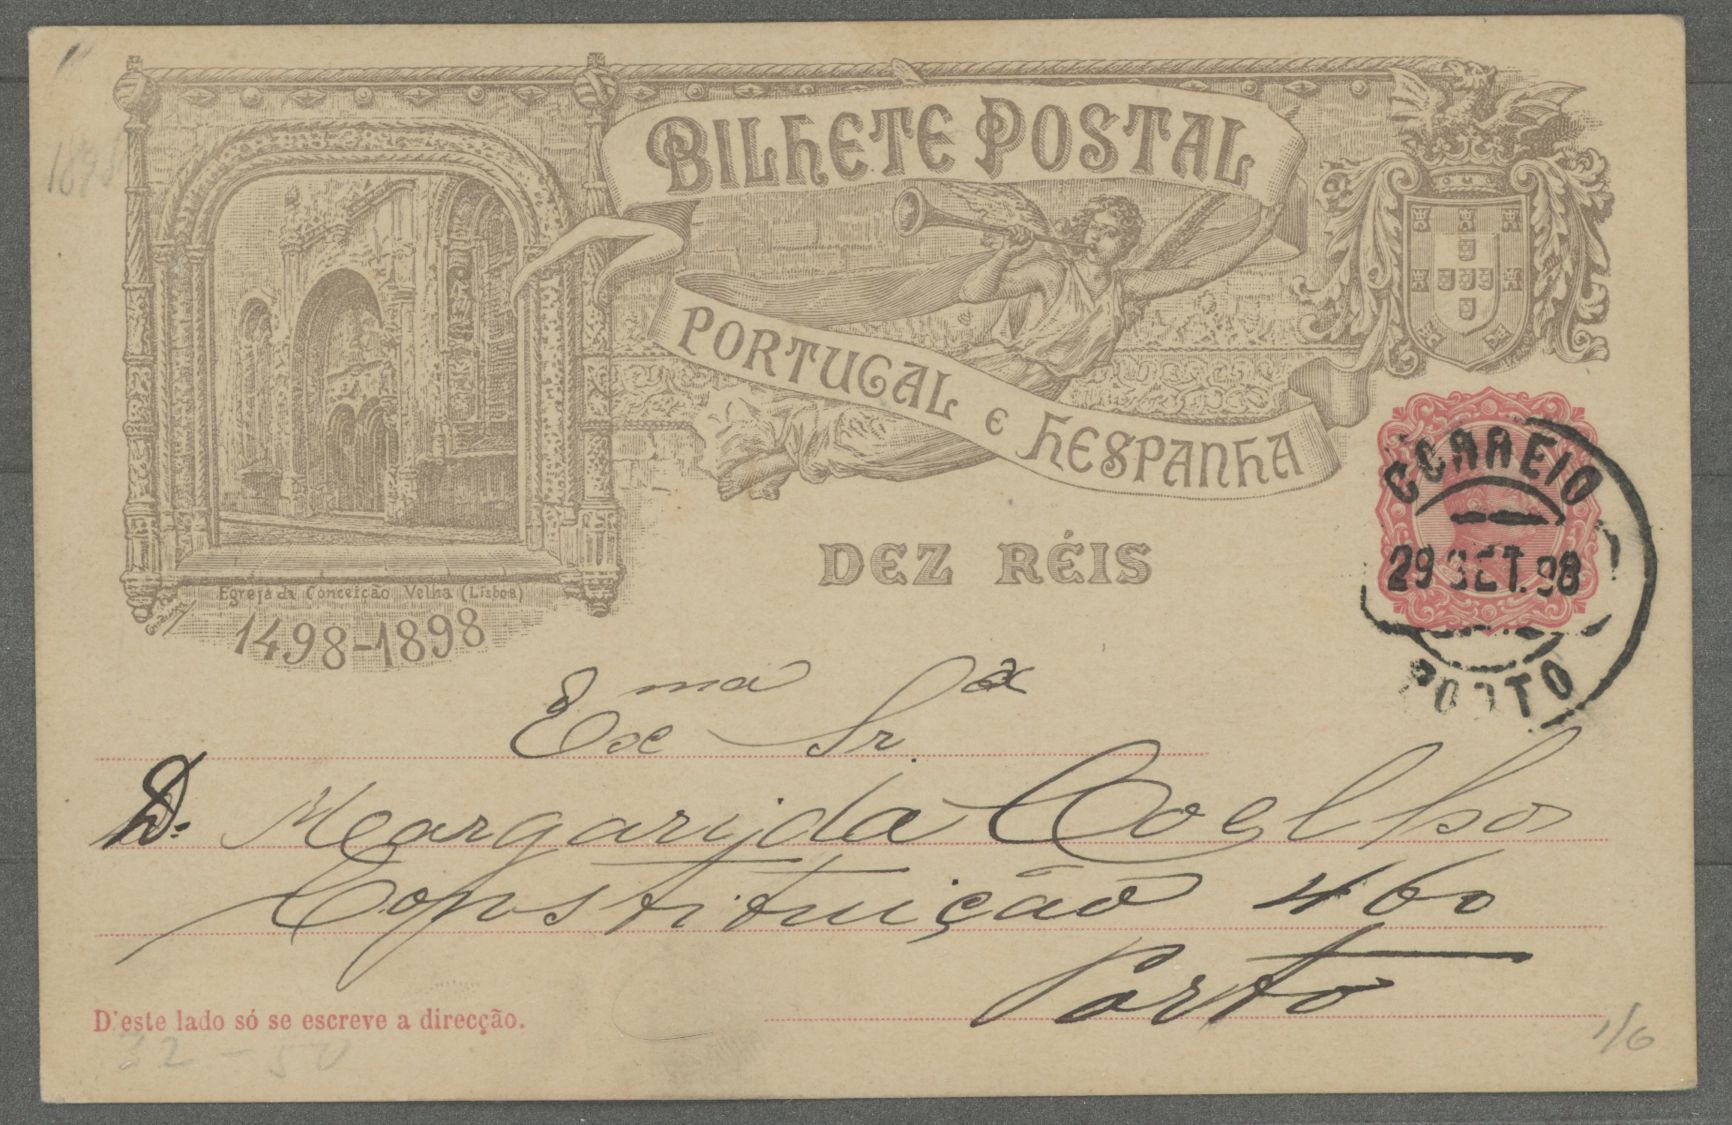 1898
BILHETE POSTAL
PORTUGAL E HESPANHA
CORREIO
29 SET. 98
PORTO
DEZ RÉIS
Egreja da Conceição Velha (Lisboa)
1498-1898
Exma Sra
D. Margarida Coelho
Constituição 460
Porto
D'este lado só se escreve a direcção.
32-50
1/6